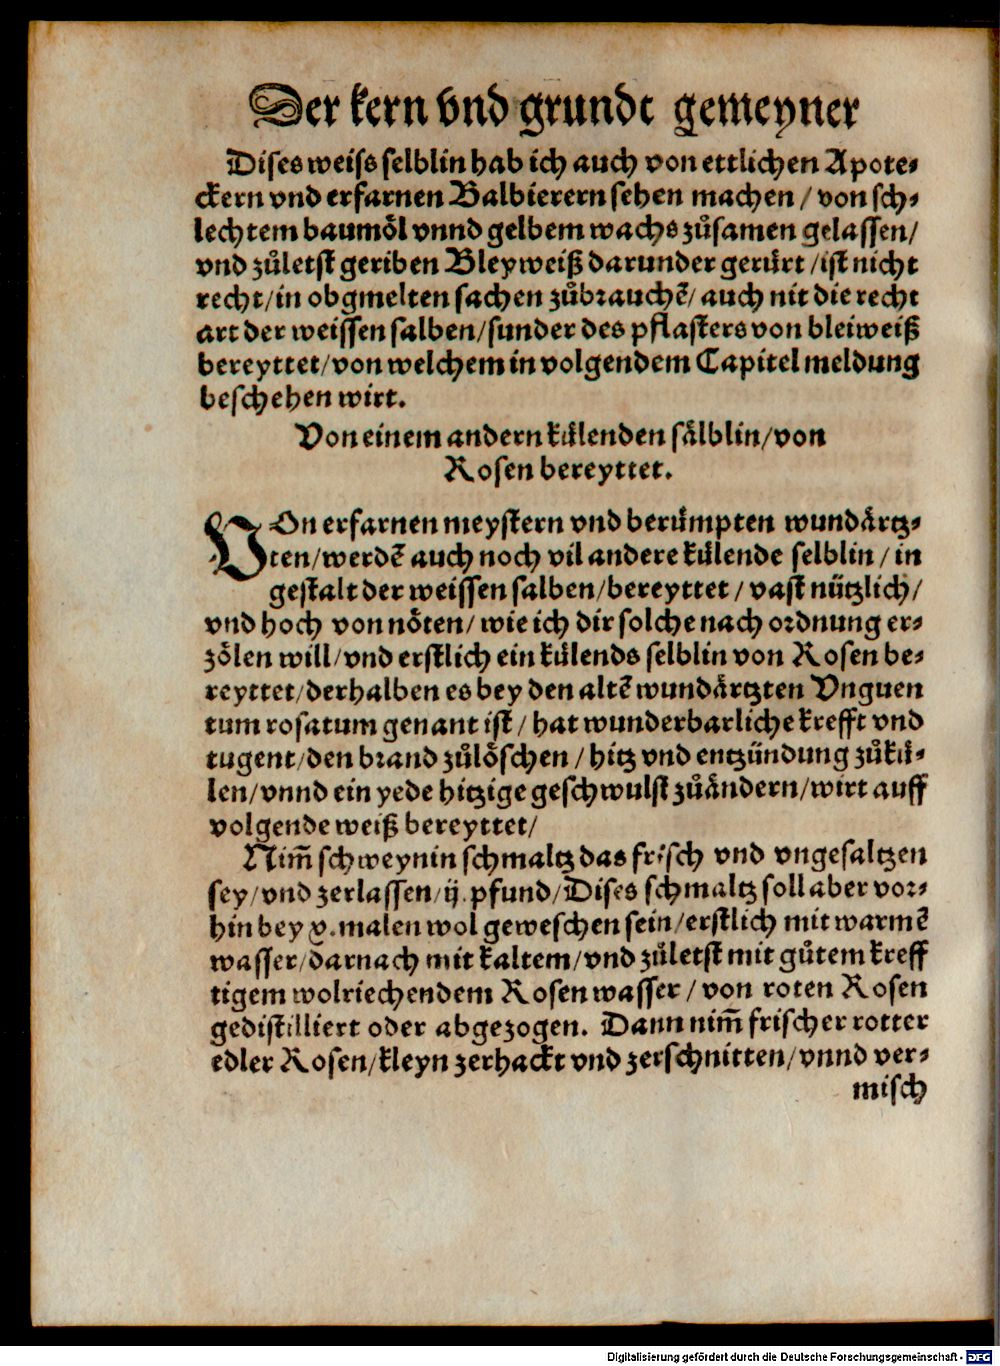 Der kern vnd grundt gemeyner
Dises weiſs selblin hab ich auch von ettlichen Apote⸗
ckern vnd erfarnen Balbierern sehen machen / von sch⸗
lechtem baumoͤl vnnd gelbem wachs zůsamen gelassen/
vnd zůletst geriben Bleyweiß darunder geruͤrt /ist nicht
recht/in obgmelten sachen zůbrauchẽ/ auch nit die recht
art der weissen salben/sunder des pflasters von bleiweiß
bereyttet/von welchem in volgendem Capitel meldung
beschehen wirt.
Von einem andern kuͤlenden saͤlblin/von
Rosen bereyttet.
VOn erfarnen meystern vnd beruͤmpten wundaͤrtz⸗
ten/werdẽ auch noch vil andere kuͤlende selblin / in
gestalt der weissen salben/bereyttet / vast nützlich/
vnd hoch von noͤten/ wie ich dir solche nach ordnung er⸗
zoͤlen will/vnd erstlich ein kuͤlends selblin von Rosen be⸗
reyttet/derhalben es bey den altẽ wundaͤrtzten Vnguen
tum rosatum genant ist / hat wunderbarliche krefft vnd
tugent/den brand zůloͤschen / hitz vnd entzündung zůkuͤ⸗
len/vnnd ein yede hitzige geschwulst zůaͤndern/wirt auff
volgende weiß bereyttet/
Nim̃ schweynin schmaltz das frisch vnd vngesaltzen
sey/vnd zerlassen/ij.pfund/Dises schmaltz soll aber vor⸗
hin bey v.malen wol geweschen sein/erstlich mit warmẽ
wasser/darnach mit kaltem/vnd zůletst mit gůtem kreff
tigem wolriechendem Rosen wasser / von roten Rosen
gedistilliert oder abgezogen. Dann nim̃ frischer rotter
edler Rosen/kleyn zerhackt vnd zerschnitten/vnnd ver⸗
misch
Digitalisierung gefördert durch die Deutsche Forschungsgemeinschaft - DFG